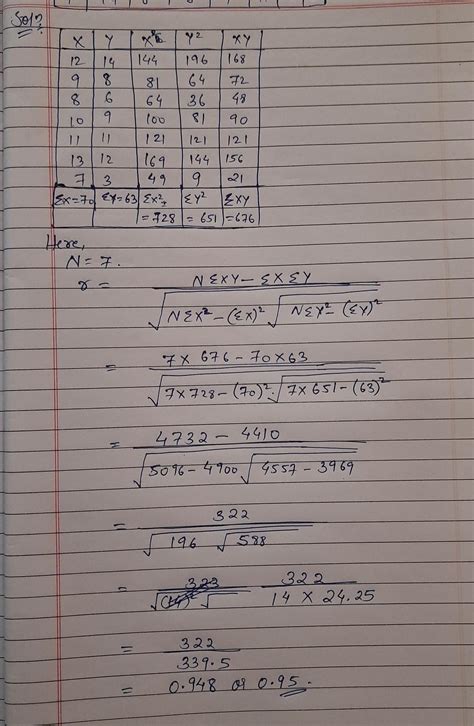 Solⁿ.
X Y X² Y² XY
12 14 144 196 168
9 8 81 64 72
8 6 64 36 48
10 9 100 81 90
11 11 121 121 121
13 12 169 144 156
7 3 49 9 21
ΣX=70 ΣY=63 ΣX² ΣY² ΣXY
=728 =651 =676
Here,
N = 7.
r = NΣXY - ΣXΣY / √NΣX² - (ΣX)² √NΣY² - (ΣY)²
= 7×676 - 70×63 / √7×728 - (70)² · √7×651 - (63)²
= 4732 - 4410 / √5096 - 4900 √4557 - 3969
= 322 / √196 √588
= 322 / 14 × 24.25
= 322 / 339.5
= 0.948 or 0.95.